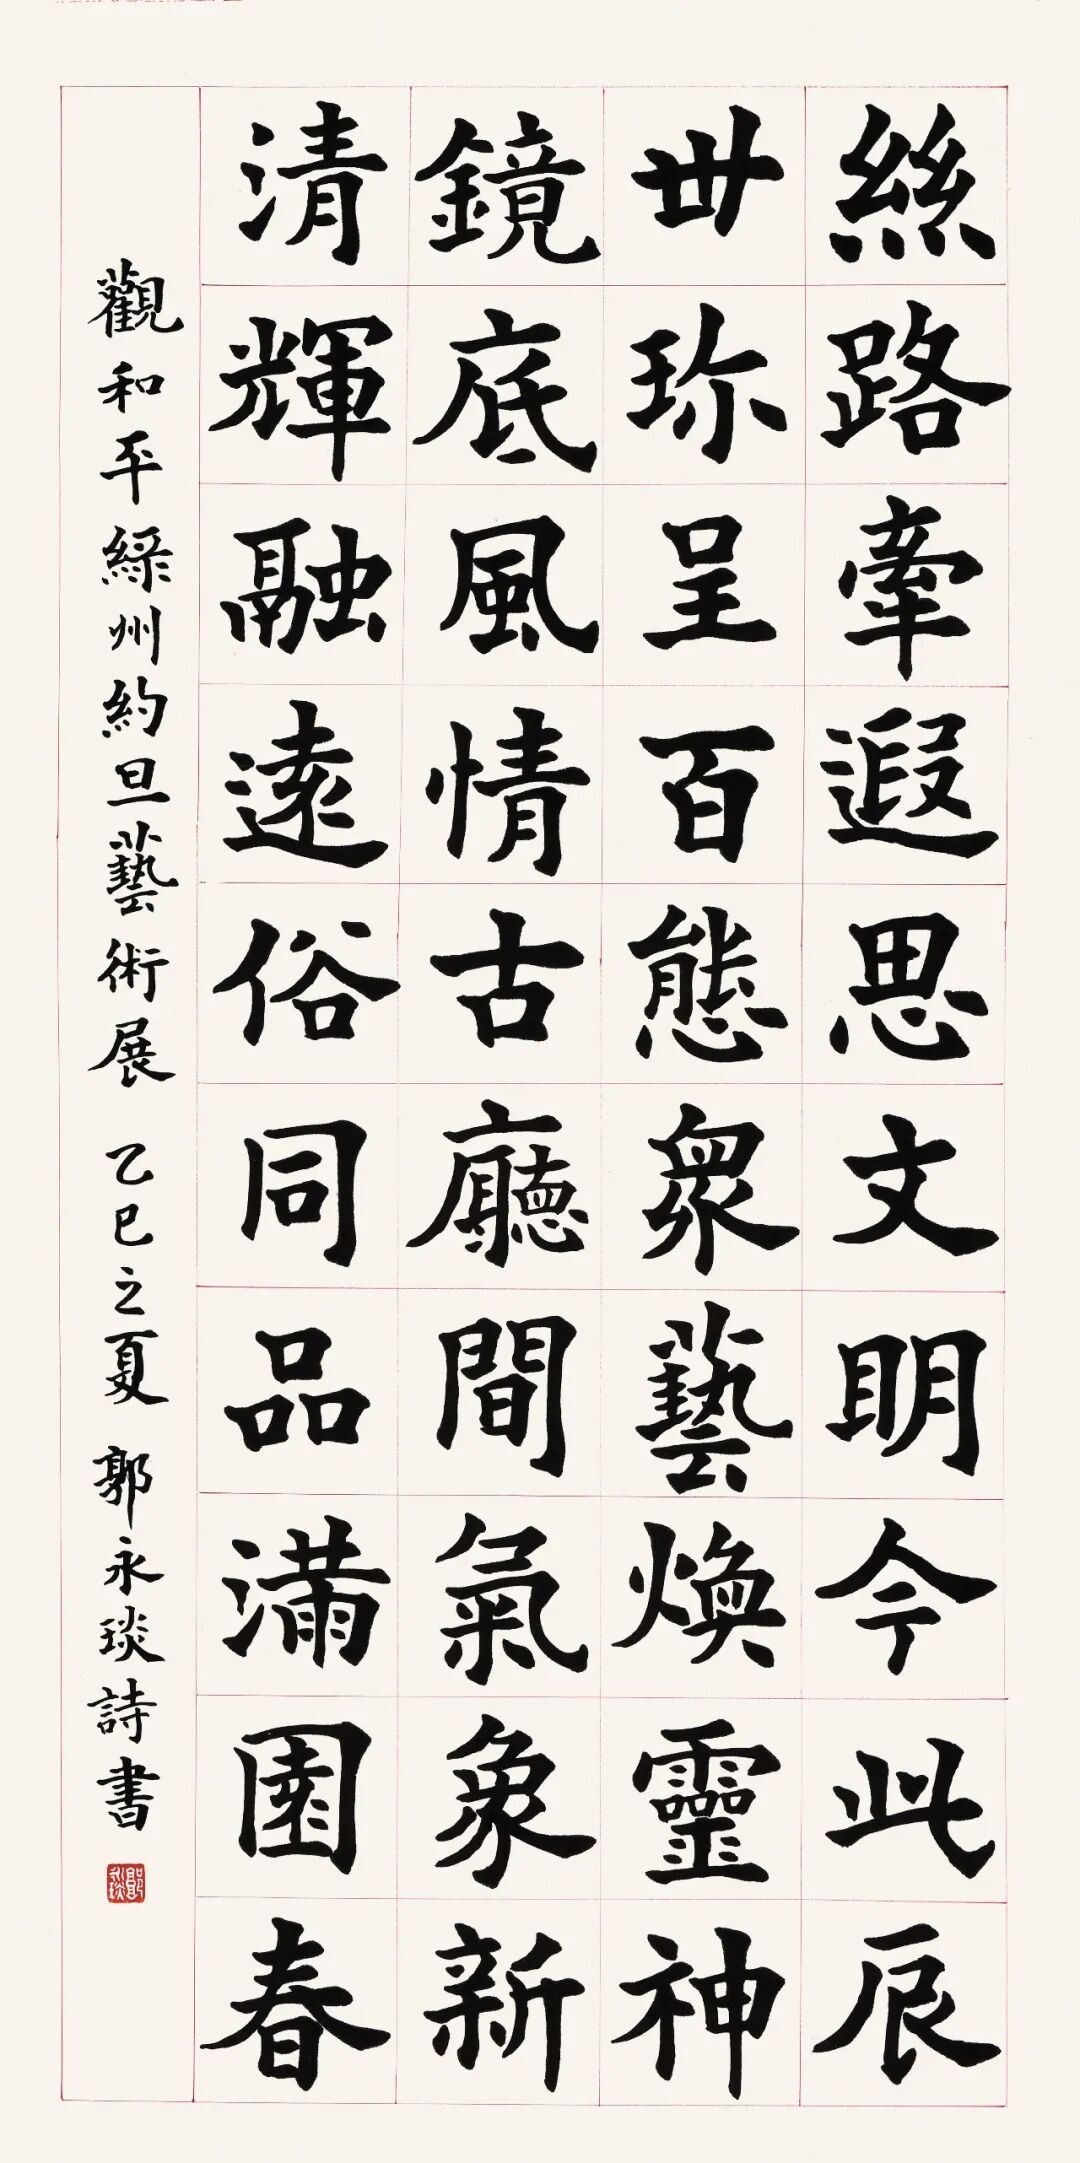 絲路牽遐思文明今此辰
世珎呈百態眾藝煥靈神
鏡底風情古廳間氣象新
清輝融遠俗同品滿園春
觀和平綠州約旦藝術展 乙巳之夏 郭永琰詩書
郭永琰